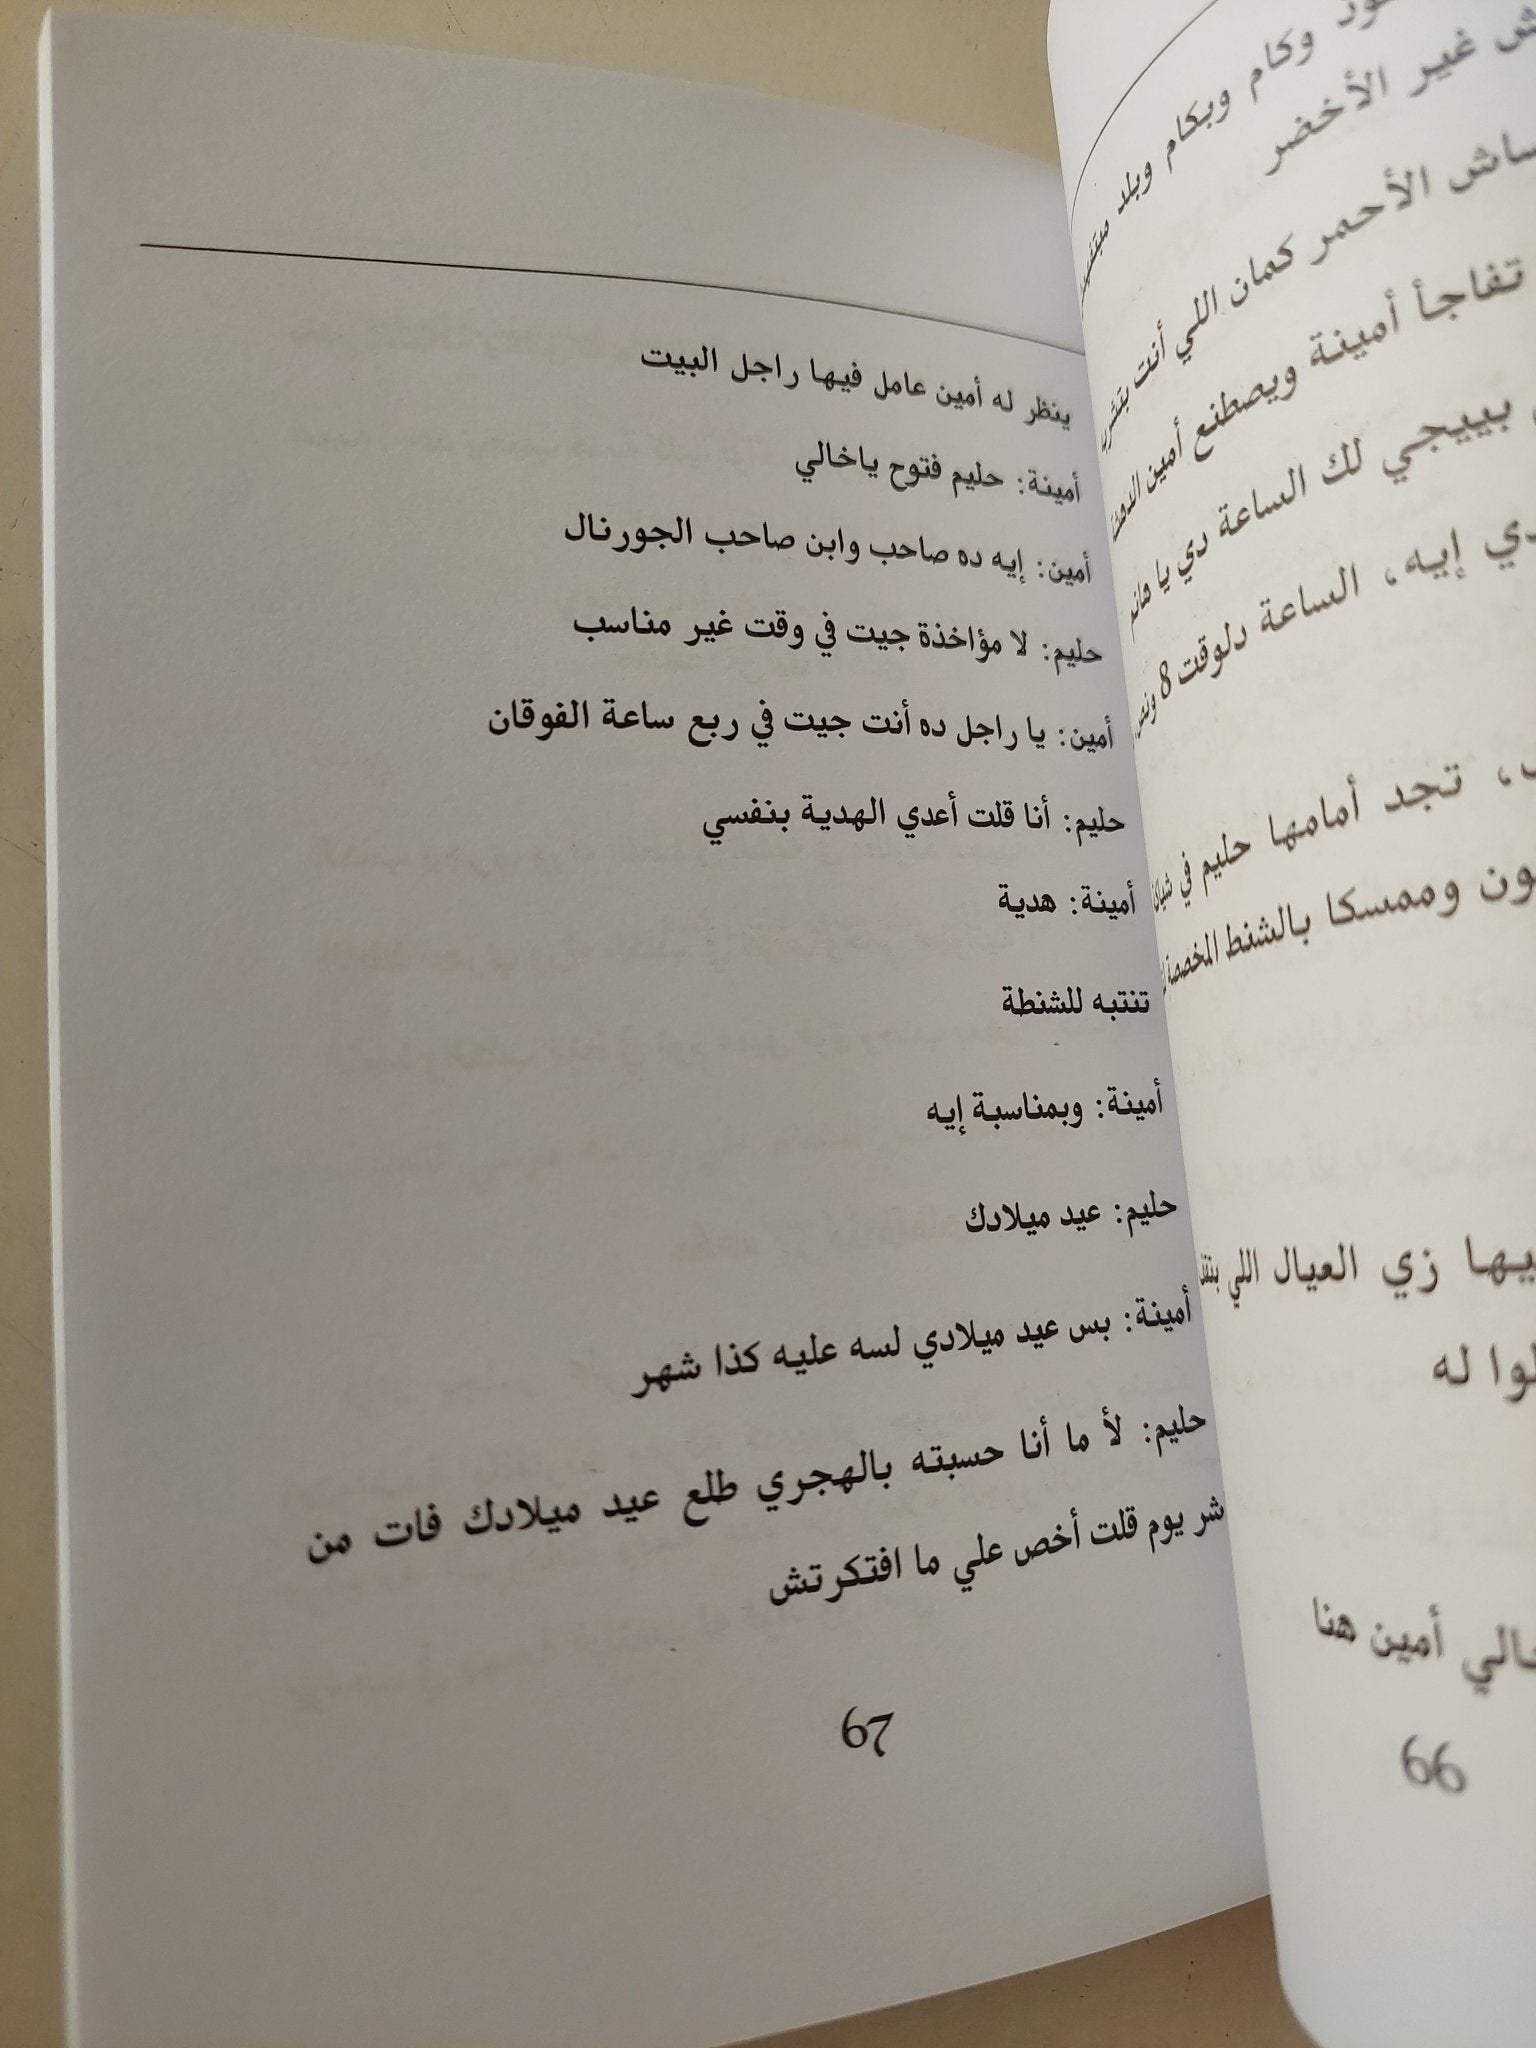 وكام وبكام وبلد
غير الأخضر
الأحمر كمان اللي أنت
تفاجأ أمينة ويصطنع أمين
بييجي لك الساعة دي يا هانم
إيه، الساعة دلوقت 8
تجد أمامها حليم في
وممسكا بالشنط المخصصة
زي العيال اللي
له
أمين هنا
66
ينظر له أمين عامل فيها راجل البيت
أمينة: حليم فتوح ياخالي
أمين: إيه ده صاحب وابن صاحب الجورنال
حليم: لا مؤاخذة جيت في وقت غير مناسب
أمين: يا راجل ده أنت جيت في ربع ساعة الفوقان
حليم: أنا قلت أعدي الهدية بنفسي
أمينة: هدية
تنتبه للشنطة
أمينة: وبمناسبة إيه
حليم: عيد ميلادك
أمينة: بس عيد ميلادي لسه عليه كذا شهر
حليم: لأ ما أنا حسبته بالهجري طلع عيد ميلادك فات من
يوم قلت أخص علي ما افتكرتش
67